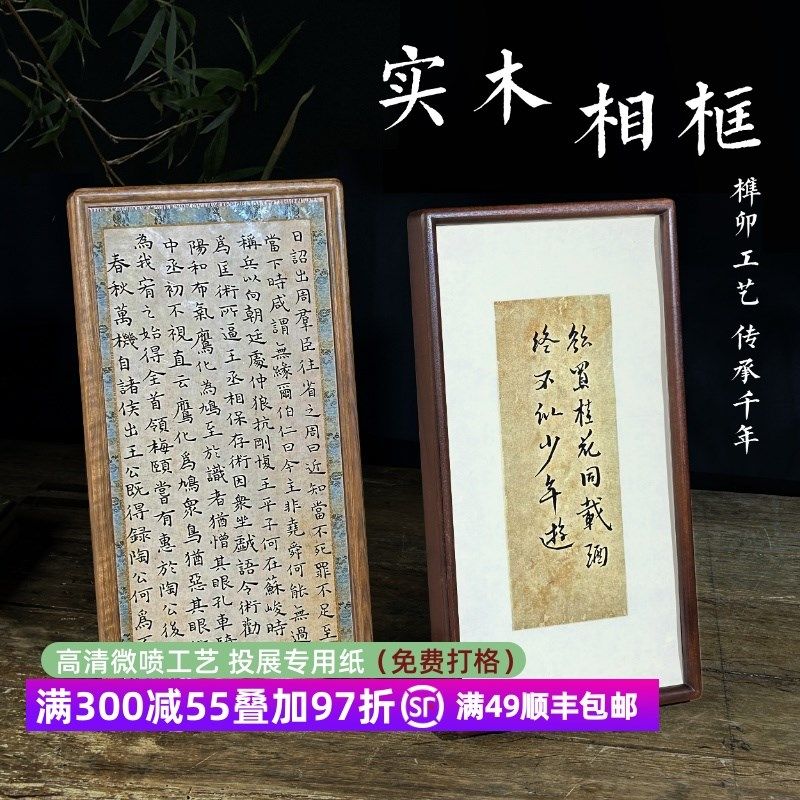 实木相框
榫卯工艺 传承千年
日詔出周羣臣往省之周曰近知當不死罪不足至
當下時咸謂無緣爾伯仁曰今主非堯舜何能無過
稱兵以向朝廷處仲狼抗剛愎王平子何在蘇峻時
爲匡術所逼王丞相保存術因衆坐戲語令術勸
陽和布氣鷹化為鳩至於識者猶憎其眼孔車
中丞初不視直云鷹化爲鳩衆鳥猶惡其眼
為我宥之始得全首領梅頤當有惠於陶公後
春秋萬機自諸侯出王公既得録陶公何爲
欲買桂花同載酒
終不似少年遊
高清微喷工艺 投展专用纸（免费打格）
满300减55叠加97折 SF 满49顺丰包邮